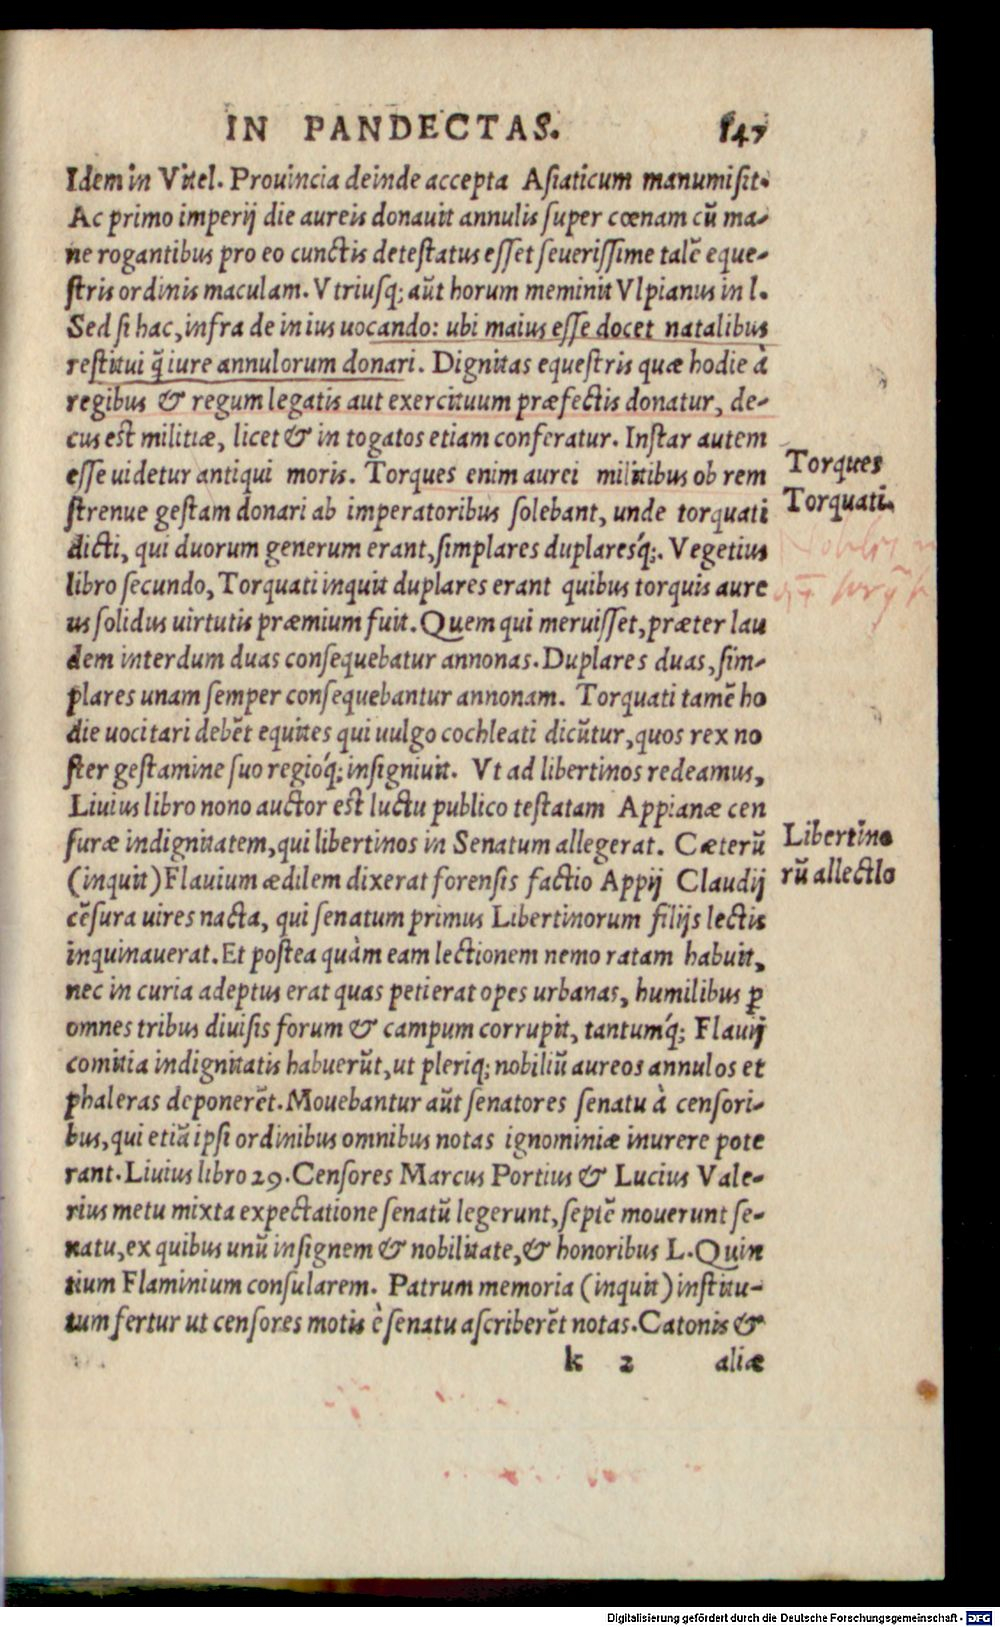 IN PANDECTAS. 147
Idem in Vitel. Prouincia deinde accepta Asiaticum manumisit.
Ac primo imperij die aureis donauit annulis super cœnam cū ma-
ne rogantibus pro eo cunctis detestatus esset seuerissime talē eque-
stris ordinis maculam. Vtriusq; aūt horum meminit Vlpianus in l.
Sed si hac, infra de in ius uocando: ubi maius esse docet natalibus
restitui q̃ iure annulorum donari. Dignitas equestris quæ hodie à
regibus & regum legatis aut exercituum præfectis donatur, de-
cus est militiæ, licet & in togatos etiam conferatur. Instar autem
esse uidetur antiqui moris. Torques enim aurei militibus ob rem
Torques
strenue gestam donari ab imperatoribus solebant, unde torquati
Torquati.
dicti, qui duorum generum erant, simplares duplaresq́;. Vegetius
libro secundo, Torquati inquit duplares erant quibus torquis aure
us solidus uirtutis præmium fuit. Quem qui meruisset, præter lau
dem interdum duas consequebatur annonas. Duplares duas, sim-
plares unam semper consequebantur annonam. Torquati tamē ho
die uocitari debēt equites qui uulgo cochleati dicūtur, quos rex no
ster gestamine suo regioq́; insigniuit. Vt ad libertinos redeamus,
Liuius libro nono auctor est luctu publico testatam Appianæ cen
suræ indignitatem, qui libertinos in Senatum allegerat. Cæterū
Libertino
(inquit) Flauium ædilem dixerat forensis factio Appij Claudij
rū allectio
cēsura uires nacta, qui senatum primus Libertinorum filijs lectis
inquinauerat. Et postea quàm eam lectionem nemo ratam habuit,
nec in curia adeptus erat quas petierat opes urbanas, humilibus ꝑ
omnes tribus diuisis forum & campum corrupit, tantumq́; Flauij
comitia indignitatis habuerūt, ut pleriq; nobiliū aureos annulos et
phaleras deponerēt. Mouebantur aūt senatores senatu à censori-
bus, qui etiā ipsi ordinibus omnibus notas ignominiæ inurere pote
rant. Liuius libro 29. Censores Marcus Portius & Lucius Vale-
rius metu mixta expectatione senatū legerunt, septē mouerunt se-
natu, ex quibus unū insignem & nobilitate, & honoribus L. Quin
tium Flaminium consularem. Patrum memoria (inquit) institu-
tum fertur ut censores motis è senatu ascriberēt notas. Catonis &
k 2 aliæ
Digitalisierung gefördert durch die Deutsche Forschungsgemeinschaft - DFG